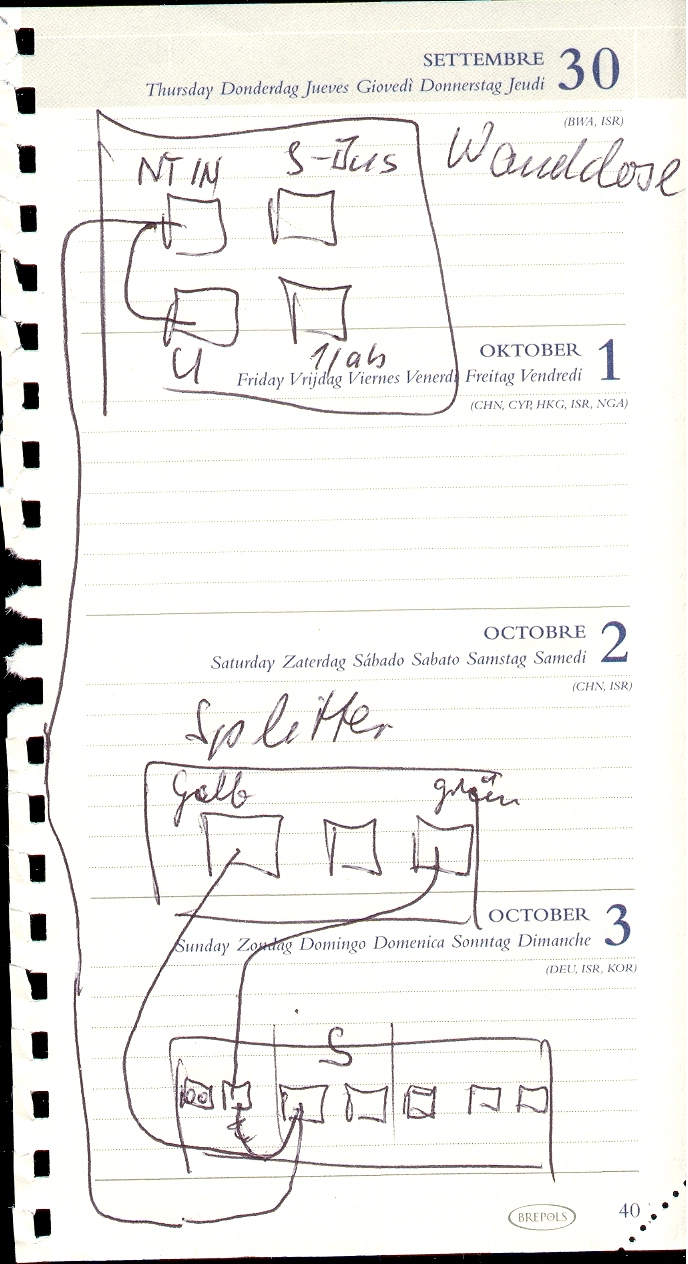 SETTEMBRE 30
Thursday Donderdag Jueves Giovedì Donnerstag Jeudi
(BWA, ISR)
Wanddose
NT IN S-Bus
U 1/ab
OKTOBER 1
Friday Vrijdag Viernes Venerdì Freitag Vendredi
(CHN, CYP, HKG, ISR, NGA)
OCTOBRE 2
Saturday Zaterdag Sábado Sabato Samstag Samedi
(CHN, ISR)
Splitter
Gelb grün
OCTOBER 3
Sunday Zondag Domingo Domenica Sonntag Dimanche
(DEU, ISR, KOR)
S
BREPOLS
40